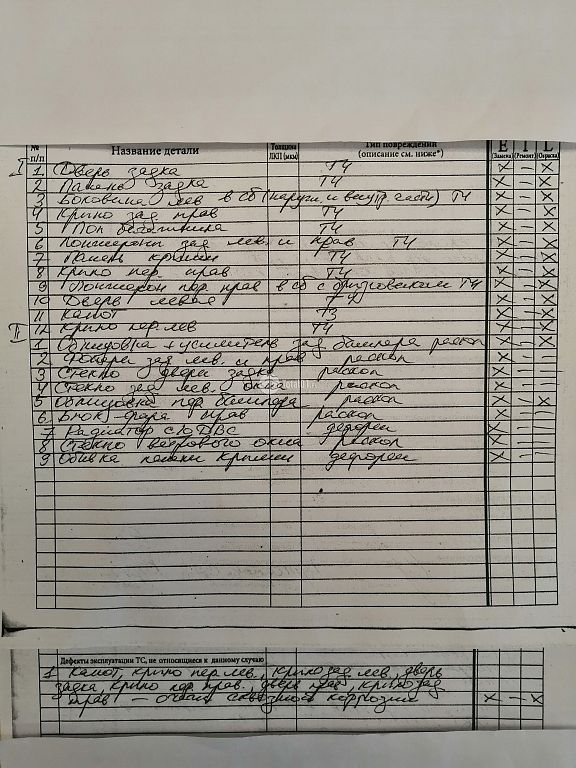 № п/п Название детали Толщина ЛКП (мкм) Тип повреждений (описание см. ниже*) E (Замена) I (Ремонт) L (Окраска)
I 1. Дверь задка Т4 × — ×
2 Панель задка Т4 × — ×
3 Боковина лев в сб (наружн. и внутр. части) Т4 × — ×
4 Крыло зад прав Т4 × — ×
5 Пол багажника Т4 × — ×
6 Лонжероны зад лев. и прав Т4 × — ×
7 Панель крыши Т4 × — ×
8 Крыло пер. прав Т4 × — ×
9 Лонжерон пер. прав в сб с брызговиком Т4 × — ×
10 Дверь левая Т4 × — ×
11 Капот Т3 × — ×
12 Крыло пер. лев Т4 × — ×
II 1 Облицовка + усилитель зад бампера раскол × — ×
2 Фонари зад лев. и прав раскол × — —
3 Стекло двери задка раскол × — —
4 Стекло зад лев. окна раскол × — —
5 Облицовка пер. бампера раскол × — ×
6 Блок-фара прав раскол × — —
7 Радиатор СО ДВС деформ × — —
8 Стекло ветрового окна раскол × — —
9 Обивка панели крыши деформ × — —
Дефекты эксплуатации ТС, не относящиеся к данному случаю
1 Капот, крыло пер. лев., крыло зад лев, дверь
задка, крыло пер. прав., дверь прав, крыло зад
прав — очаги сквозной коррозии × — ×